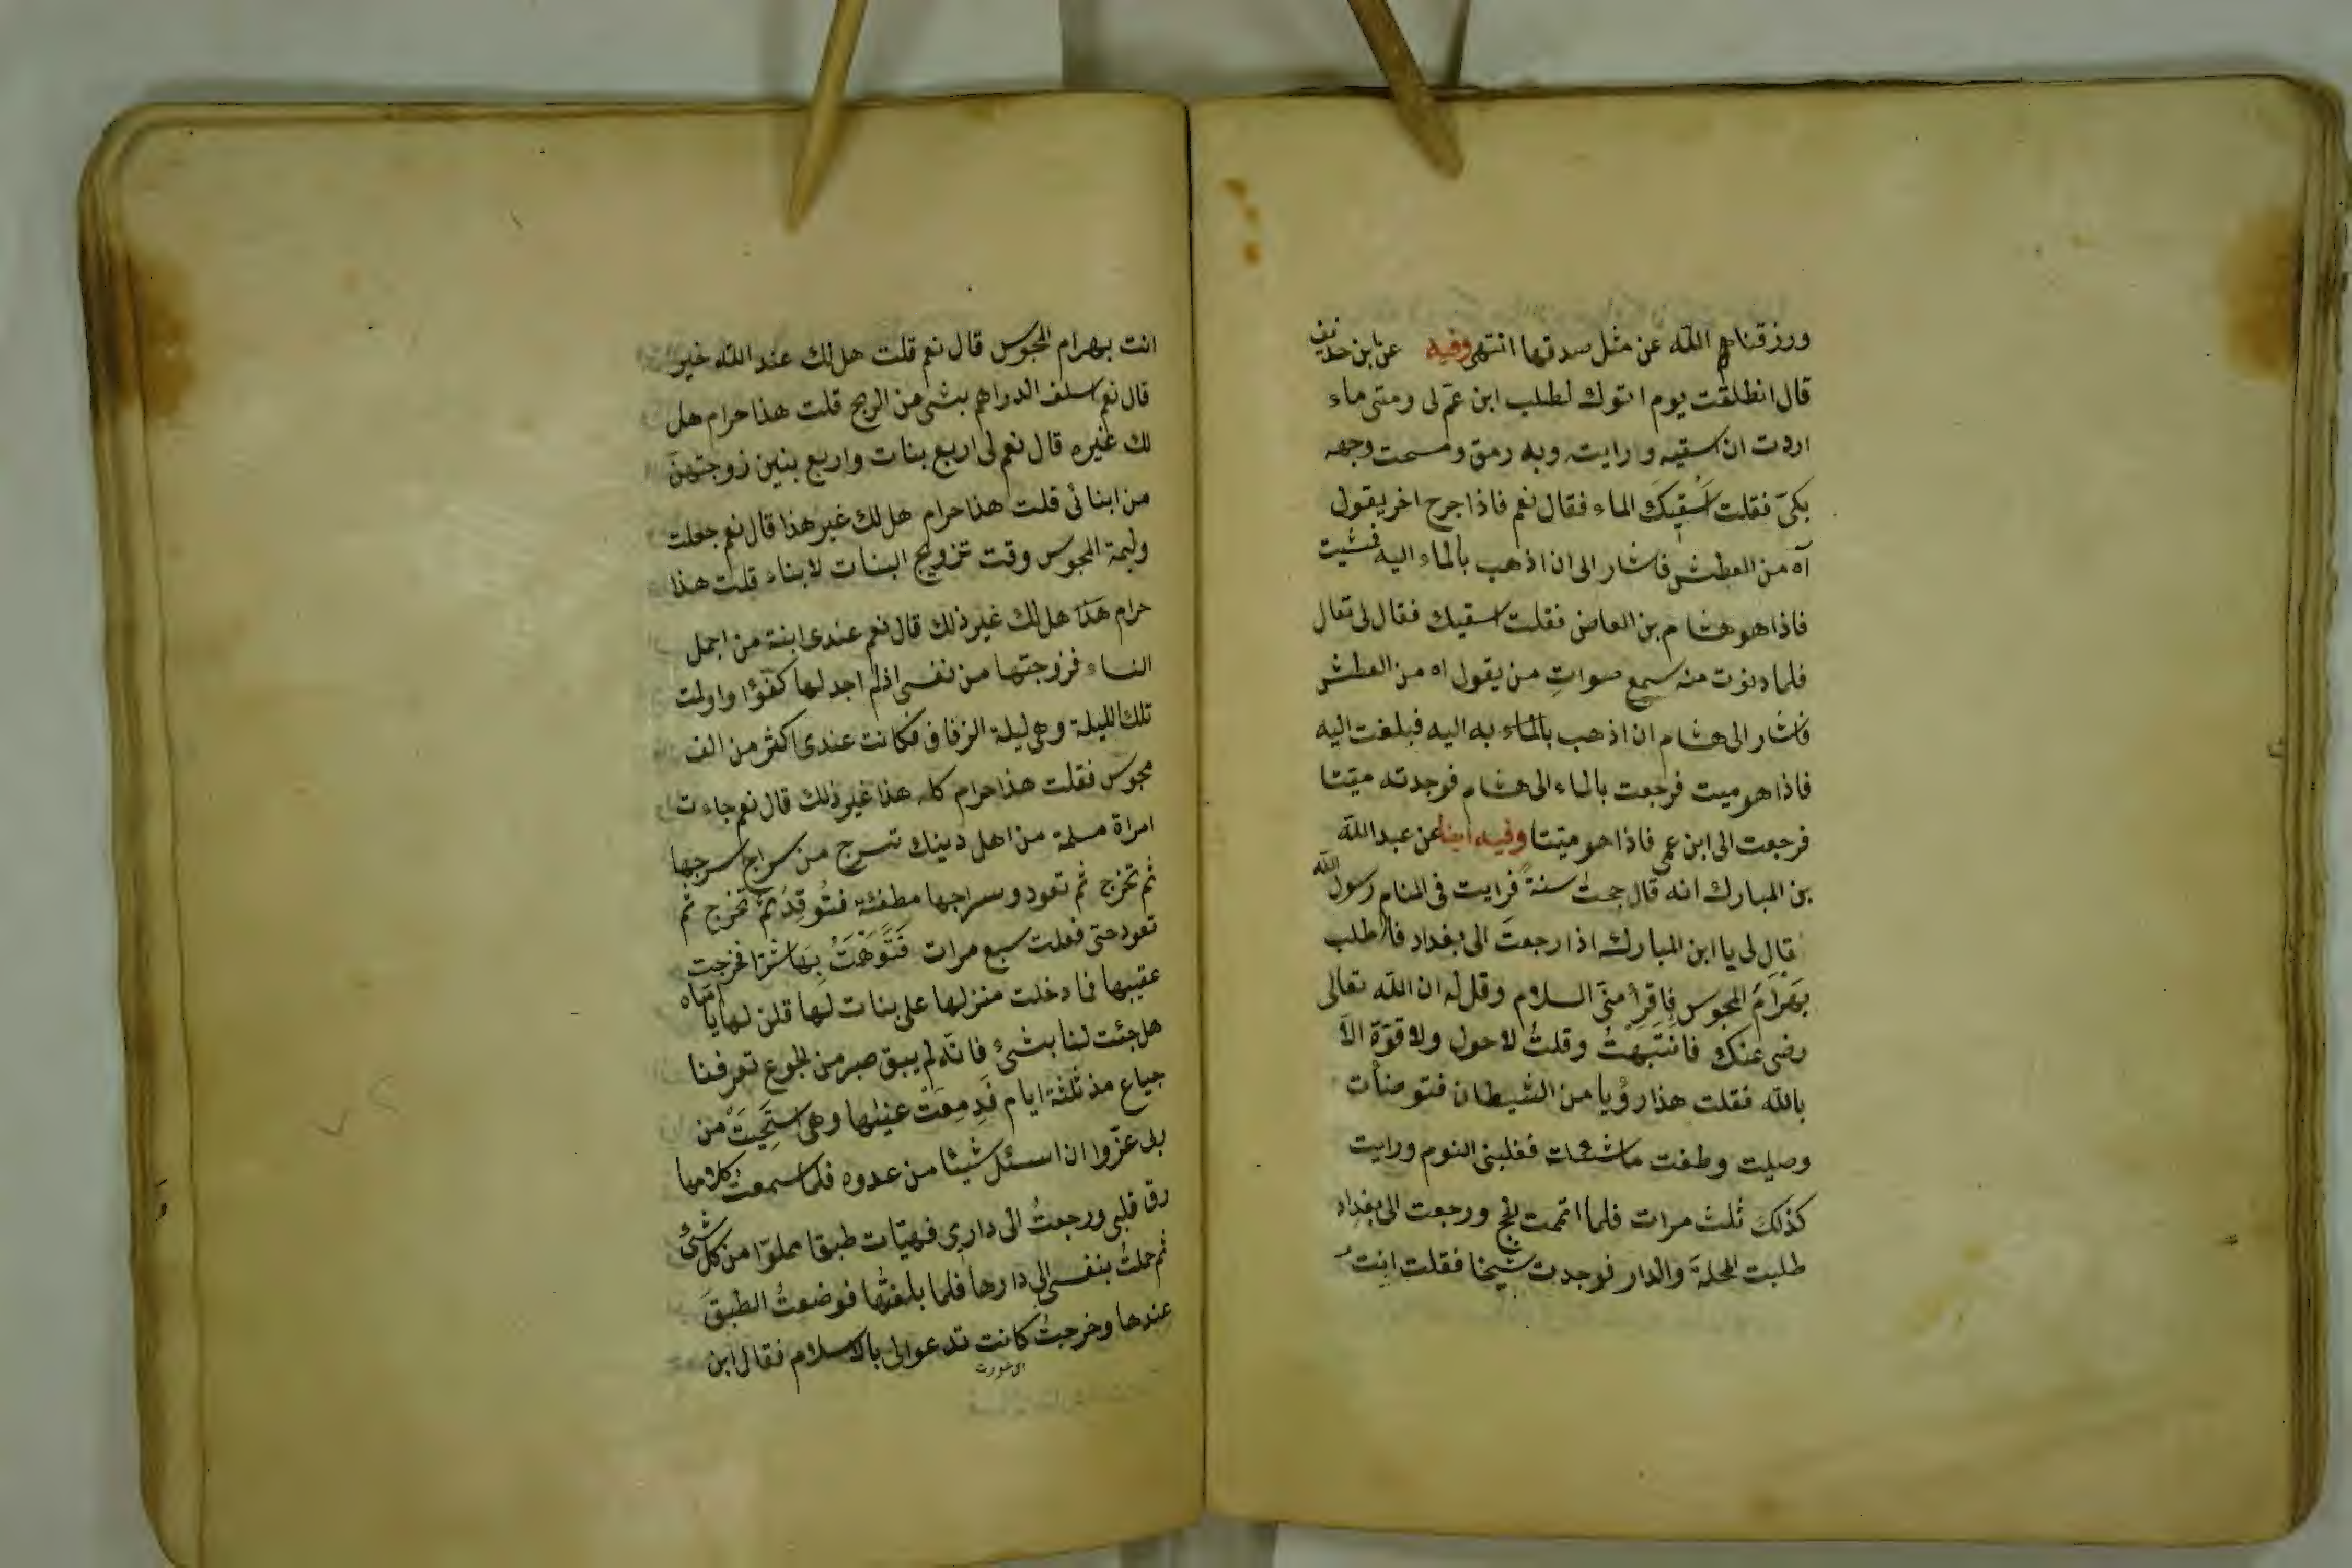 ورزقناه الله عن مثل صدقها انتهى وفيه عن ابن حذيف
قال انطلقت يوم اتوك لطلب ابن عم لى ومتى ماء
اردت ان اسقيه وارايت وبه رمق ومسحت وجهه
بكى فقلت اَسقيكَ الماء فقال نعم فاذا جرح اخر يقول
آه من العطش فاشار الى ان اذهب بالماء اليه فمشيت
فاذا هو هشام بن العاص فقلت اسقيك فقال لى تعال
فلما دنوت منه سمع صوات من يقول اه من العطش
فاشار الى هشام ان اذهب بالماء به اليه فبلغت اليه
فاذا هو ميت فرجعت بالماء الى هشام فوجدته ميتا
فرجعت الى ابن عمى فاذا هو ميتا وفيه ايضا عن عبد الله
بن المبارك انه قال حججت سنة فرايت فى المنام رسول الله
قال لى يا ابن المبارك اذا رجعت الى بغداد فاطلب
بَهرامَ المجوس فاقرأ منى السلام وقل له ان الله تعالى
رضى عنك فانتَبَهْتُ وقلتُ لا حول ولا قوّة الاّ
بالله فقلت هذا رؤيا من الشيطان فتوضأت
وصليت وطفت ما شئت فغلبنى النوم ورايت
كذلك ثلث مرات فلما اتممت الحج ورجعت الى بغداد
طلبت المحلة والدار فوجدت شيخا فقلت انت
انت بهرام المجوس قال نعم قلت هل لك عند الله خير
قال نعم اسلف الدراهم بشئ من الربح قلت هذا حرام هل
لك غيره قال نعم لى اربع بنات واربع بنين زوجتهنّ
من ابنائى قلت هذا حرام هل لك غير هذا قال نعم جعلت
وليمة المجوس وقت تزويج البنات لابناء قلت هذا
حرام هذا هل لك غير ذلك قال نعم عندى ابنة من اجمل
النساء فزوجتها من نفسى اذ لم اجد لها كفؤا واولمت
تلك الليلة وهى ليلة الزفاف فكانت عندى اكثر من الف
مجوس فقلت هذا حرام كله هذا غير ذلك قال نعم جاءت
امراة مسلمة من اهل دينك تسرج من سراج سرجها
ثم تخرج ثم تعود وسراجها مطفئة فتُوقِدُ ثم تخرج ثم
تعود حتى فعلت سبع مرات فَتَوَهَّمَتُ بِهَا شرّا فخرجت
عقيبها فما دخلت منزلها على بنات لها قلن لها يا اماه
هل جئت لنا بشئ فانّه لم يبق صبر من الجوع تعرفنا
جياع مذ ثلثة ايام فَدِمعَت عينها وهى استَحيَتْ من
ان اسئل شيئا من عدوه فلما سمعت كلامها
رق قلبى ورجعتُ الى دارى فهيّات طبقا مملوّا من كل شئ
ثم حملتُ بنفسى الى دارها فلما بلغتُها فوضعتُ الطبقَ
عندها وخرجتُ كانت تدعوا لى بالاسلام فقال ابن